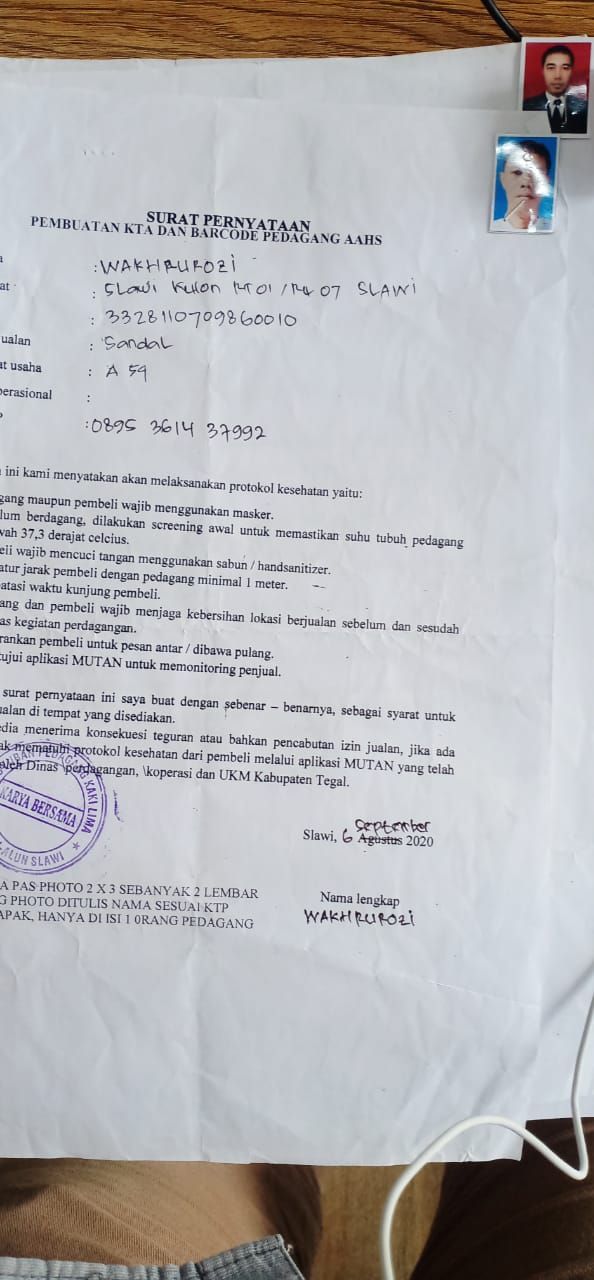 SURAT PERNYATAAN
PEMBUATAN KTA DAN BARCODE PEDAGANG AAHS
: WAKHRUROZI
at : SLAWI KULON RT 01 / RW 07 SLAWI
: 3328110709860010
ualan : Sandal
at usaha : A 59
perasional :
: 0895 3614 37992
ini kami menyatakan akan melaksanakan protokol kesehatan yaitu:
gang maupun pembeli wajib menggunakan masker.
lum berdagang, dilakukan screening awal untuk memastikan suhu tubuh pedagang
wah 37,3 derajat celcius.
eli wajib mencuci tangan menggunakan sabun / handsanitizer.
atur jarak pembeli dengan pedagang minimal 1 meter.
atasi waktu kunjung pembeli.
ang dan pembeli wajib menjaga kebersihan lokasi berjualan sebelum dan sesudah
as kegiatan perdagangan.
rankan pembeli untuk pesan antar / dibawa pulang.
tujui aplikasi MUTAN untuk memonitoring penjual.
surat pernyataan ini saya buat dengan sebenar – benarnya, sebagai syarat untuk
ualan di tempat yang disediakan.
edia menerima konsekuesi teguran atau bahkan pencabutan izin jualan, jika ada
ak mematuhi protokol kesehatan dari pembeli melalui aplikasi MUTAN yang telah
oleh Dinas perdagangan, koperasi dan UKM Kabupaten Tegal.
PEDAGANG KAKI LIMA
KARYA BERSAMA
ALUN SLAWI
September
Slawi, 6 Agustus 2020
A PAS PHOTO 2 X 3 SEBANYAK 2 LEMBAR
G PHOTO DITULIS NAMA SESUAI KTP
APAK, HANYA DI ISI 1 0RANG PEDAGANG
Nama lengkap
WAKHRUROZI